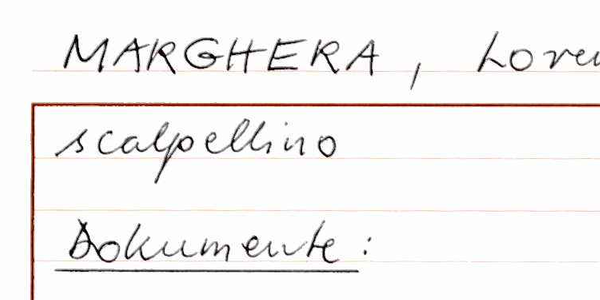 MARGHERA,
scalpellino
Dokumente: